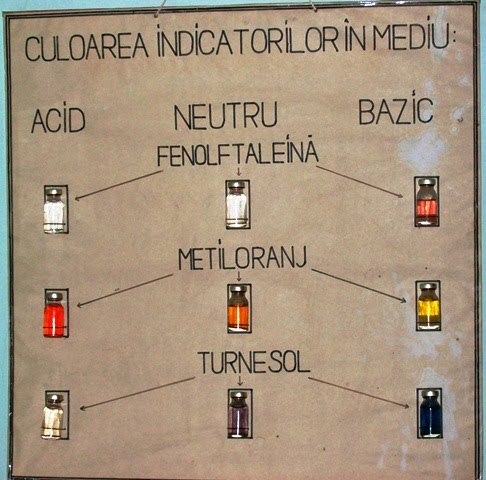 CULOAREA INDICATORILOR ÎN MEDIU:
ACID NEUTRU BAZIC
FENOLFTALEINĂ
METILORANJ
TURNESOL